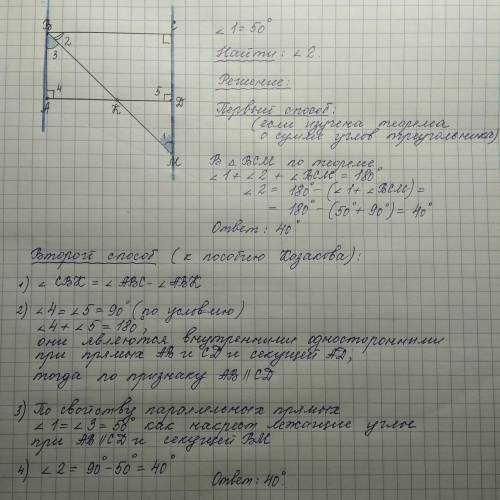 B 2 C
3
A 4 K 5 D
1
M
∠1 = 50°
Найти: ∠2.
Решение:
Первый способ:
(если изучена теорема
о сумме углов треугольника)
В △ BCM по теореме
∠1 + ∠2 + ∠BCM = 180°
∠2 = 180° - (∠1 + ∠BCM) =
= 180° - (50° + 90°) = 40°
Ответ: 40°
Второй способ (к пособию Козакова):
1) ∠ CBK = ∠ ABC - ∠ ABK
2) ∠4 = ∠5 = 90° (по условию)
∠4 + ∠5 = 180°,
они являются внутренними односторонними
при прямых AB и CD и секущей AD,
тогда по признаку AB || CD
3) По свойству параллельных прямых
∠1 = ∠3 = 50° как накрест лежащие углы
при AB || CD и секущей BM
4) ∠2 = 90° - 50° = 40°
Ответ: 40°.